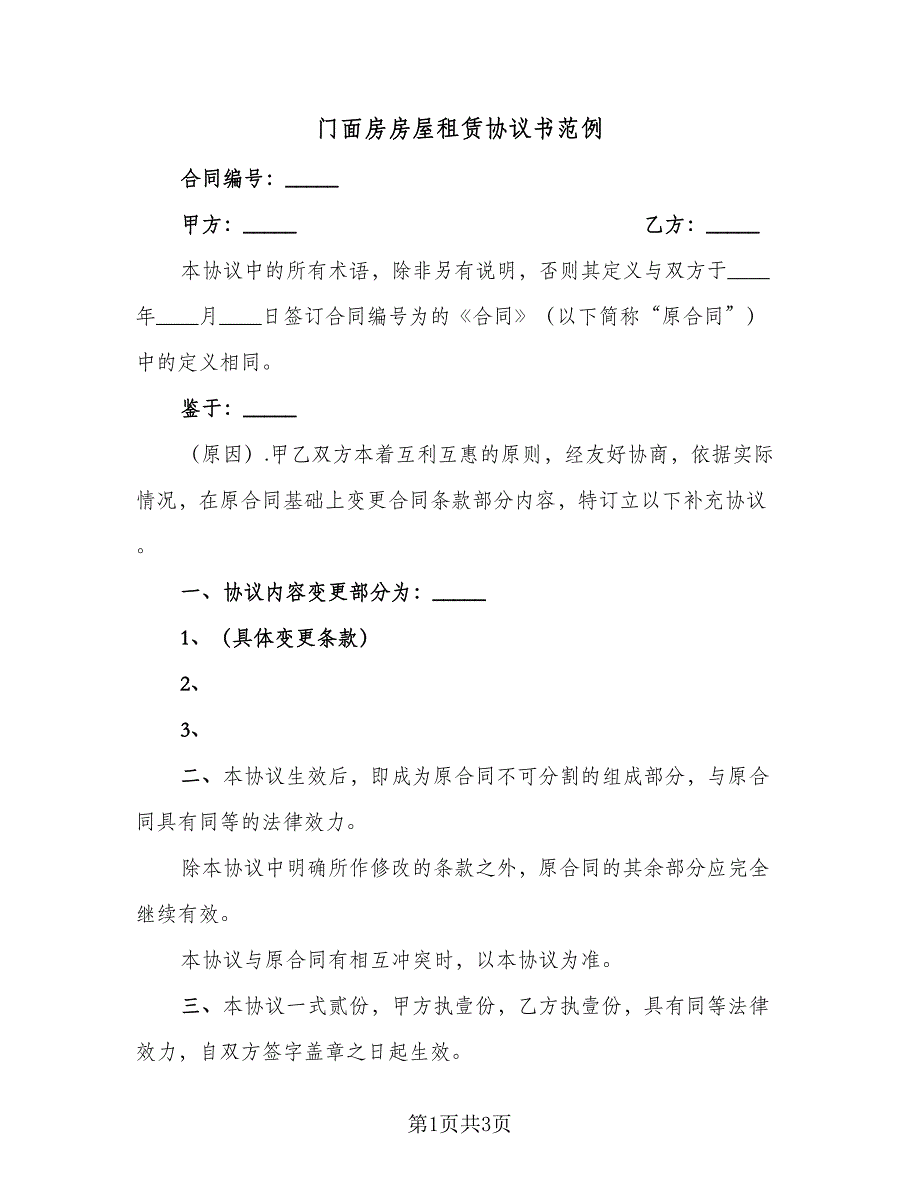 门面房房屋租赁协议书范例
合同编号：_____
甲方：_____ 乙方：_____
本协议中的所有术语，除非另有说明，否则其定义与双方于____
年____月____日签订合同编号为的《合同》（以下简称“原合同”）
中的定义相同。
鉴于：_____
（原因）.甲乙双方本着互利互惠的原则，经友好协商，依据实际
情况，在原合同基础上变更合同条款部分内容，特订立以下补充协议
。
一、协议内容变更部分为：_____
1、（具体变更条款）
2、
3、
二、本协议生效后，即成为原合同不可分割的组成部分，与原合
同具有同等的法律效力。
除本协议中明确所作修改的条款之外，原合同的其余部分应完全
继续有效。
本协议与原合同有相互冲突时，以本协议为准。
三、本协议一式贰份，甲方执壹份，乙方执壹份，具有同等法律
效力，自双方签字盖章之日起生效。
第1页共3页